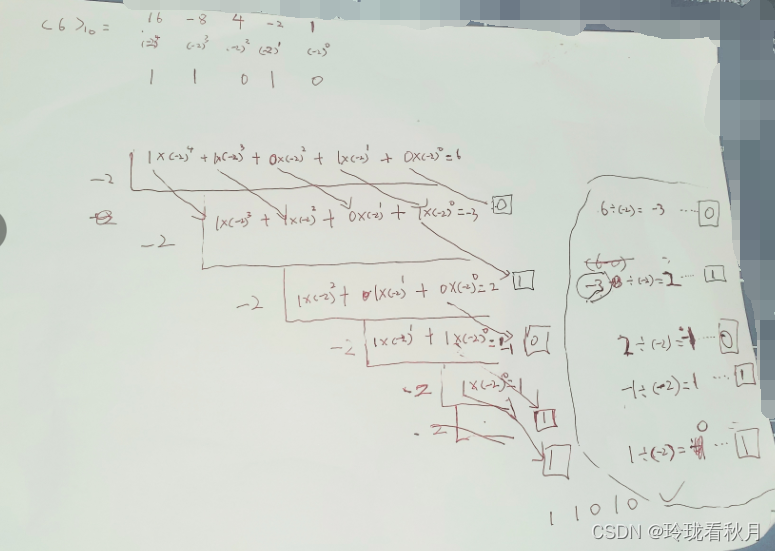 <6>₁₀ = 16 -8 4 -2 1
(-2)⁴ (-2)³ (-2)² (-2)¹ (-2)⁰
1 1 0 1 0
-2 1×(-2)⁴ + 1×(-2)³ + 0×(-2)² + 1×(-2)¹ + 0×(-2)⁰ = 6
0
-2 1×(-2)³ + 1×(-2)² + 0×(-2)¹ + 1×(-2)⁰ = -3
1
-2 1×(-2)² + 1×(-2)¹ + 0×(-2)⁰ = 2
0
-2 1×(-2)¹ + 1×(-2)⁰ = -1
1
-2 1×(-2)⁰ = 1
1
-2
6÷(-2) = -3 ... 0
(6-0)
-3 ÷(-2) = 2 ... 1
2÷(-2) = -1 ... 0
-1÷(-2) = 1 ... 1
1÷(-2) = 0 ... 1
1 1 0 1 0
CSDN @玲珑看秋月